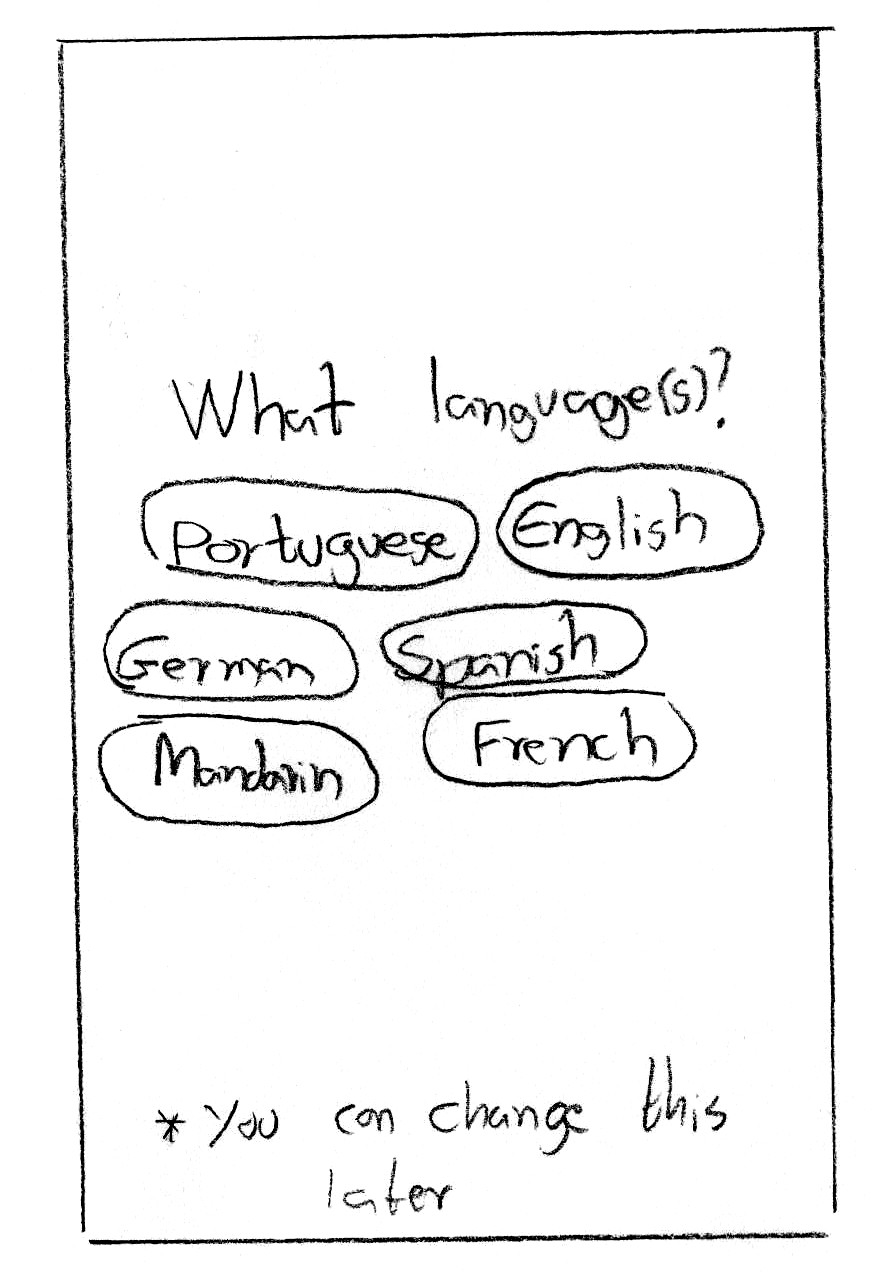 What language(s)?
Portuguese English
German Spanish
Mandarin French
* You can change this
later